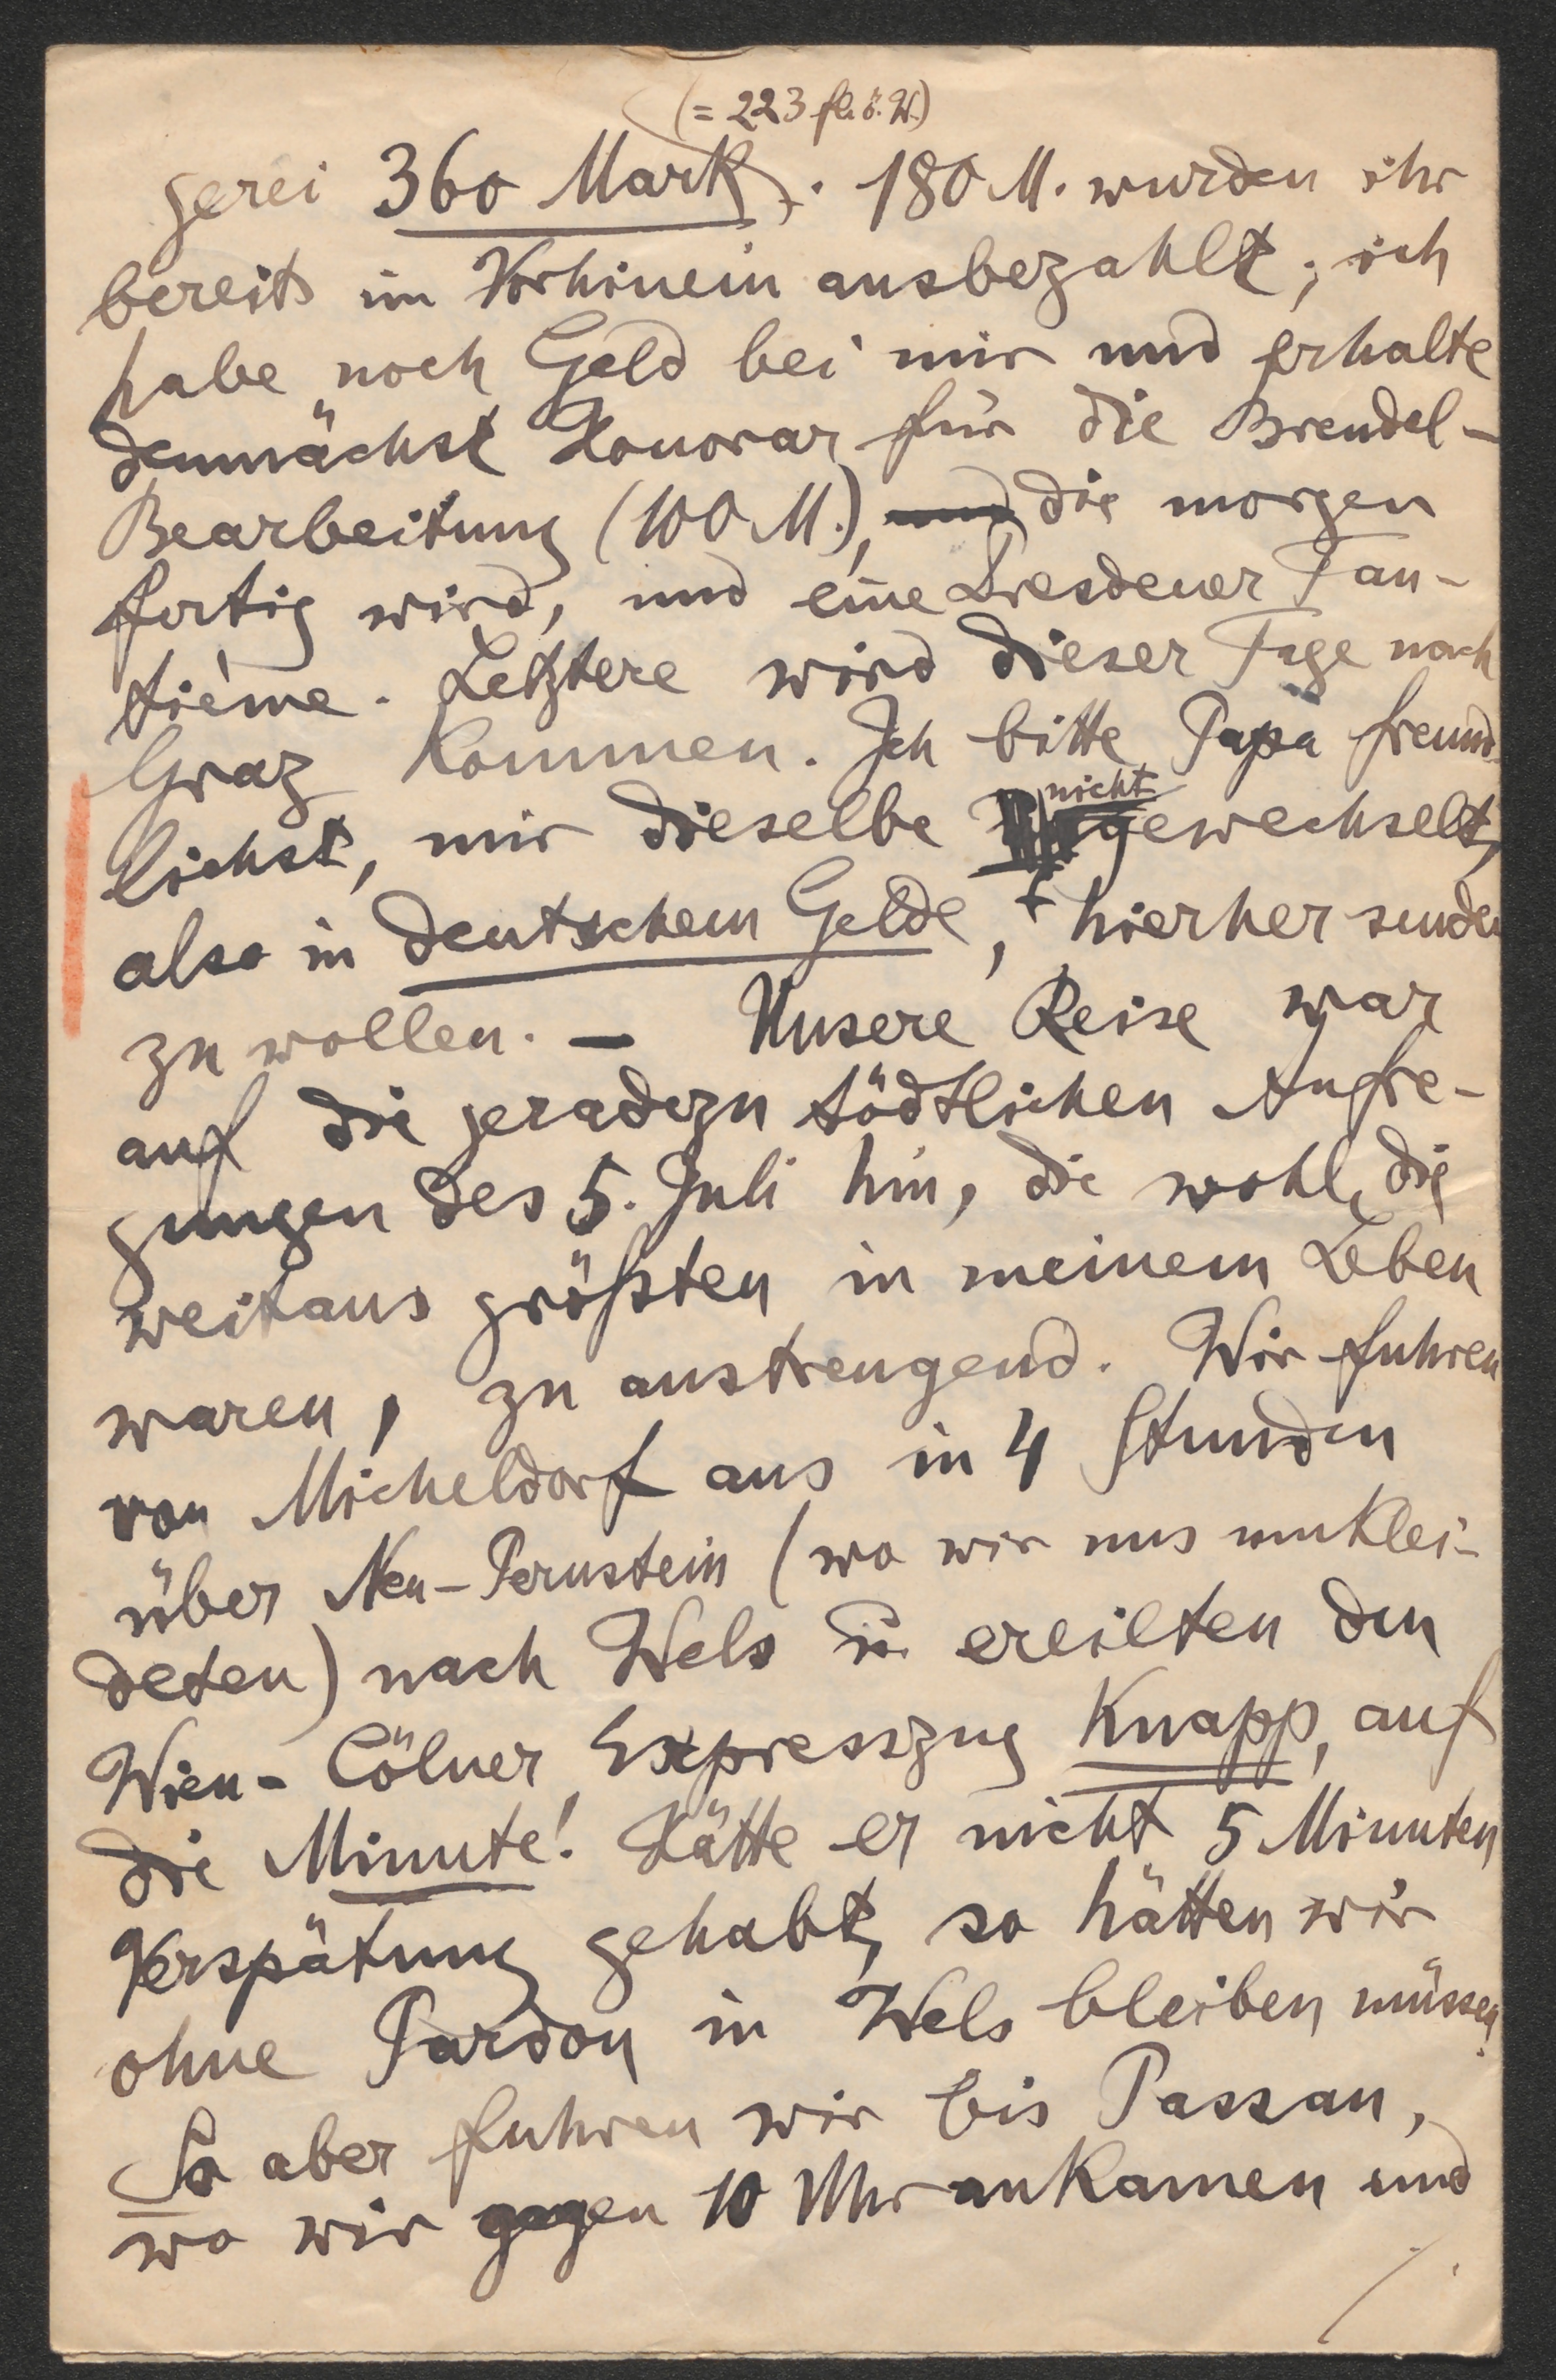 (= 223 fl. ö. W.)
gerei 360 Mark). 180 M. wurden ihr
bereits im Vorhinein ausbezahlt; ich
habe noch Geld bei mir und erhalte
demnächst Honorar für die Brendel-
Bearbeitung (100 M.), und die morgen
fertig wird, und eine Dresdener Tan-
tième. Letztere wird dieser Tage nach
Graz kommen. Ich bitte Papa freund-
lichst, mir dieselbe nicht gewechselt,
also in deutschem Gelde, hierher senden
zu wollen. – Unsere Reise war
auf die geradezu tödtlichen Aufre-
gungen des 5. Juli hin, die wohl die
weitaus größten in meinem Leben
waren, zu anstrengend. Wir fuhren
von Micheldorf aus in 4 Stunden
über Neu-Pernstein (wo wir uns umklei-
deten) nach Wels u. ereilten den
Wien-Cölner Expresszug knapp, auf
die Minute! Hätte er nicht 5 Minuten
Verspätung gehabt, so hätten wir
ohne Pardon in Wels bleiben müssen!
So aber fuhren wir bis Passau,
wo wir gegen 10 Uhr ankamen und